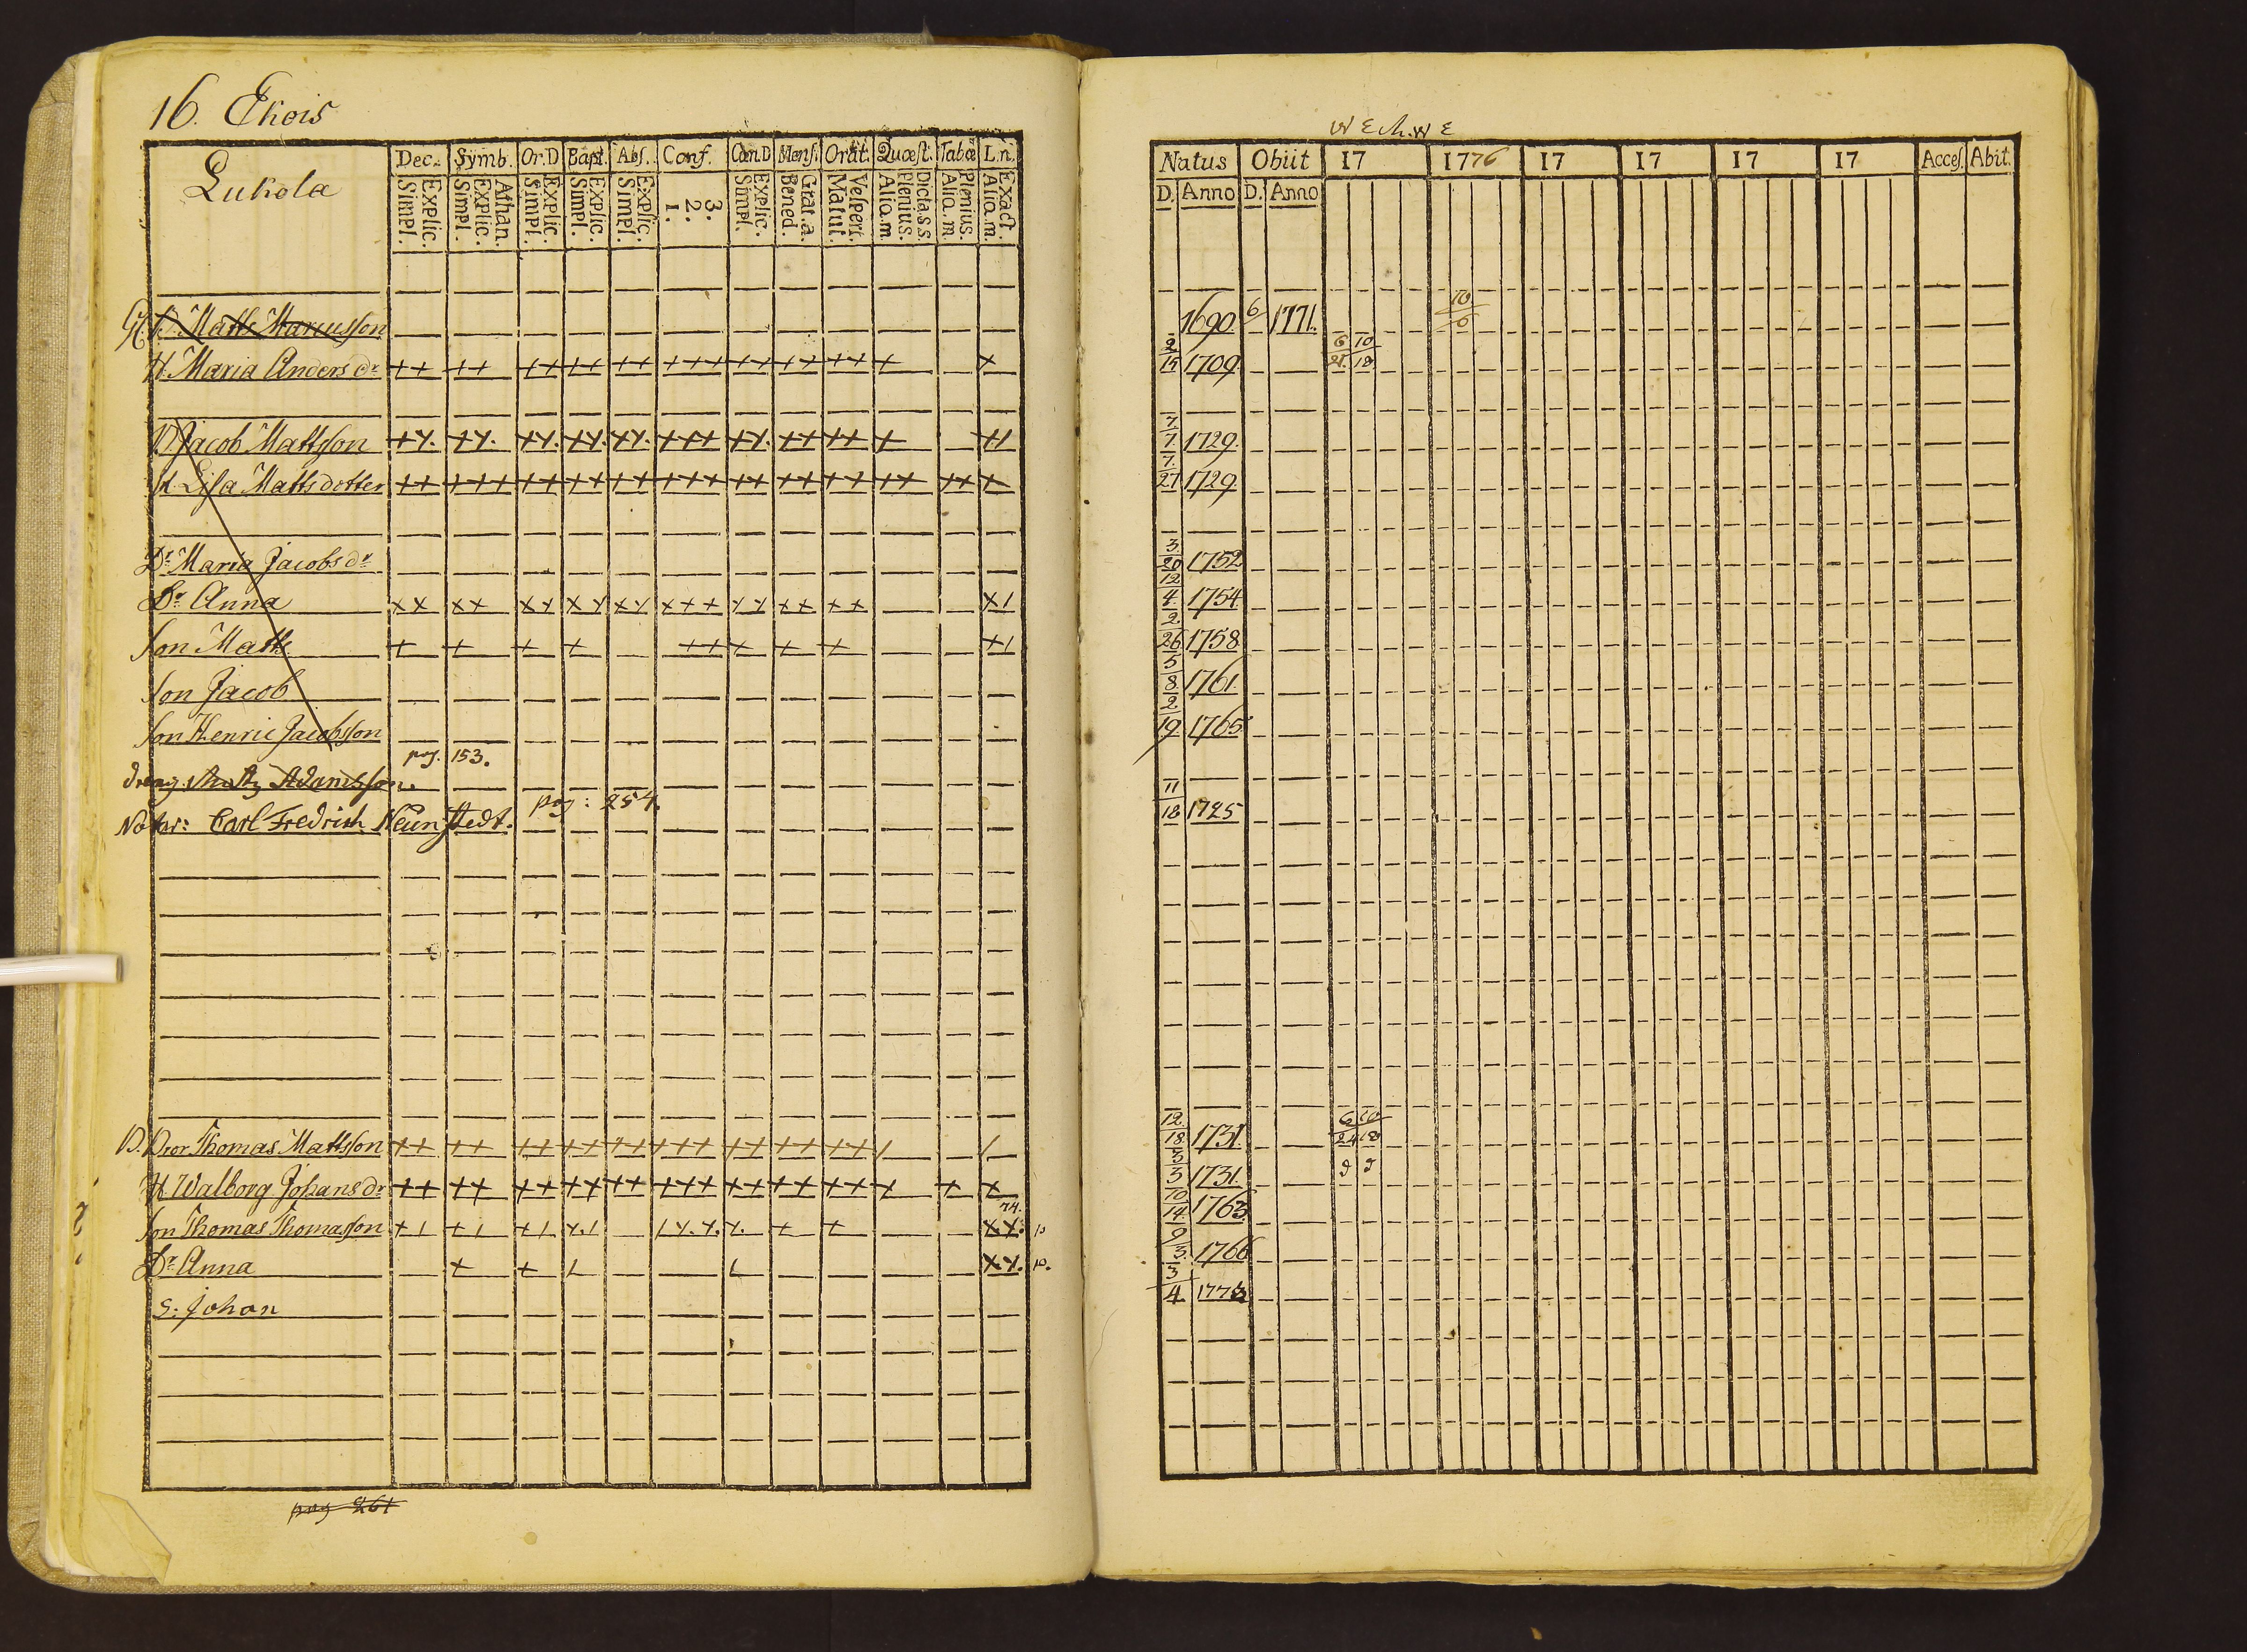 16. Ekois
Lukola
Dec. Symb. Or.D Bapt. Abs. Conf. Cœn.D Mens. Orat. Quæst. Tabœ L.n.
Explic. Simpl. Athan. Explic. Simpl. Explic. Simpl. Explic. Simpl. Explic. Simpl. 3. 2. 1. Explic. Simpl. Grat.a. Bened. Vespert. Matut. Dicta.s.s. Plenius. Aliq.m Plenius. Aliq.m. Exact. Aliq.m.
Matts Marcusson
H. Maria Anders dr ++ ++ ++ ++ ++ +++ ++ ++ ++ + x
Jacob Mattsson
H Lisa Matts dotter ++ +++ ++ ++ ++ +++ ++ ++ ++ ++ ++ +
Dr Maria Jacobs dr
Dr Anna
Son Matts
Son Jacob
Son Henric Jacobsson
pag. 153.
dreng. Matz Adamsson.
Notar: Carl Fredrich Neunstedt. pag: 254.
B. Bror Thomas Mattsson
H Walborg Johans dr
Son Thomas Thomasson
Dr Anna
S: Johan
pag 261
Natus Obiit 17 1776 17 17 17 17 Acces. Abit.
D. Anno D. Anno
1690 6 1771.
2/15 1709. 6/21. 10/18
7/7 1729.
7./27 1729.
3./20 1752
12/4. 1754.
2./26 1758
5/8 1761.
2/19 1765
11/18 1725
12./18 1731. 6/24 10/18
3/3 1731.
10/14. 1763.
9/3. 1766
3/4. 1773